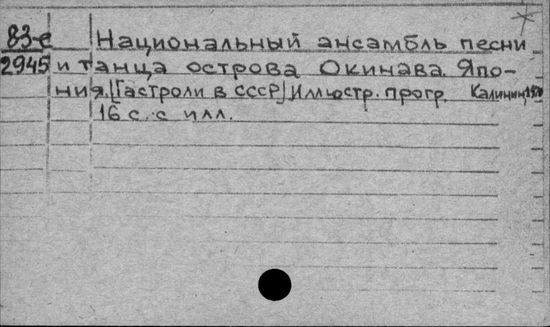 83-е Национальный ансамбль песни
2945 и танца острова Окинава. Япо-
ния. [Гастроли в СССР] Иллюстр. прогр. Калинин,
16 с. с илл.